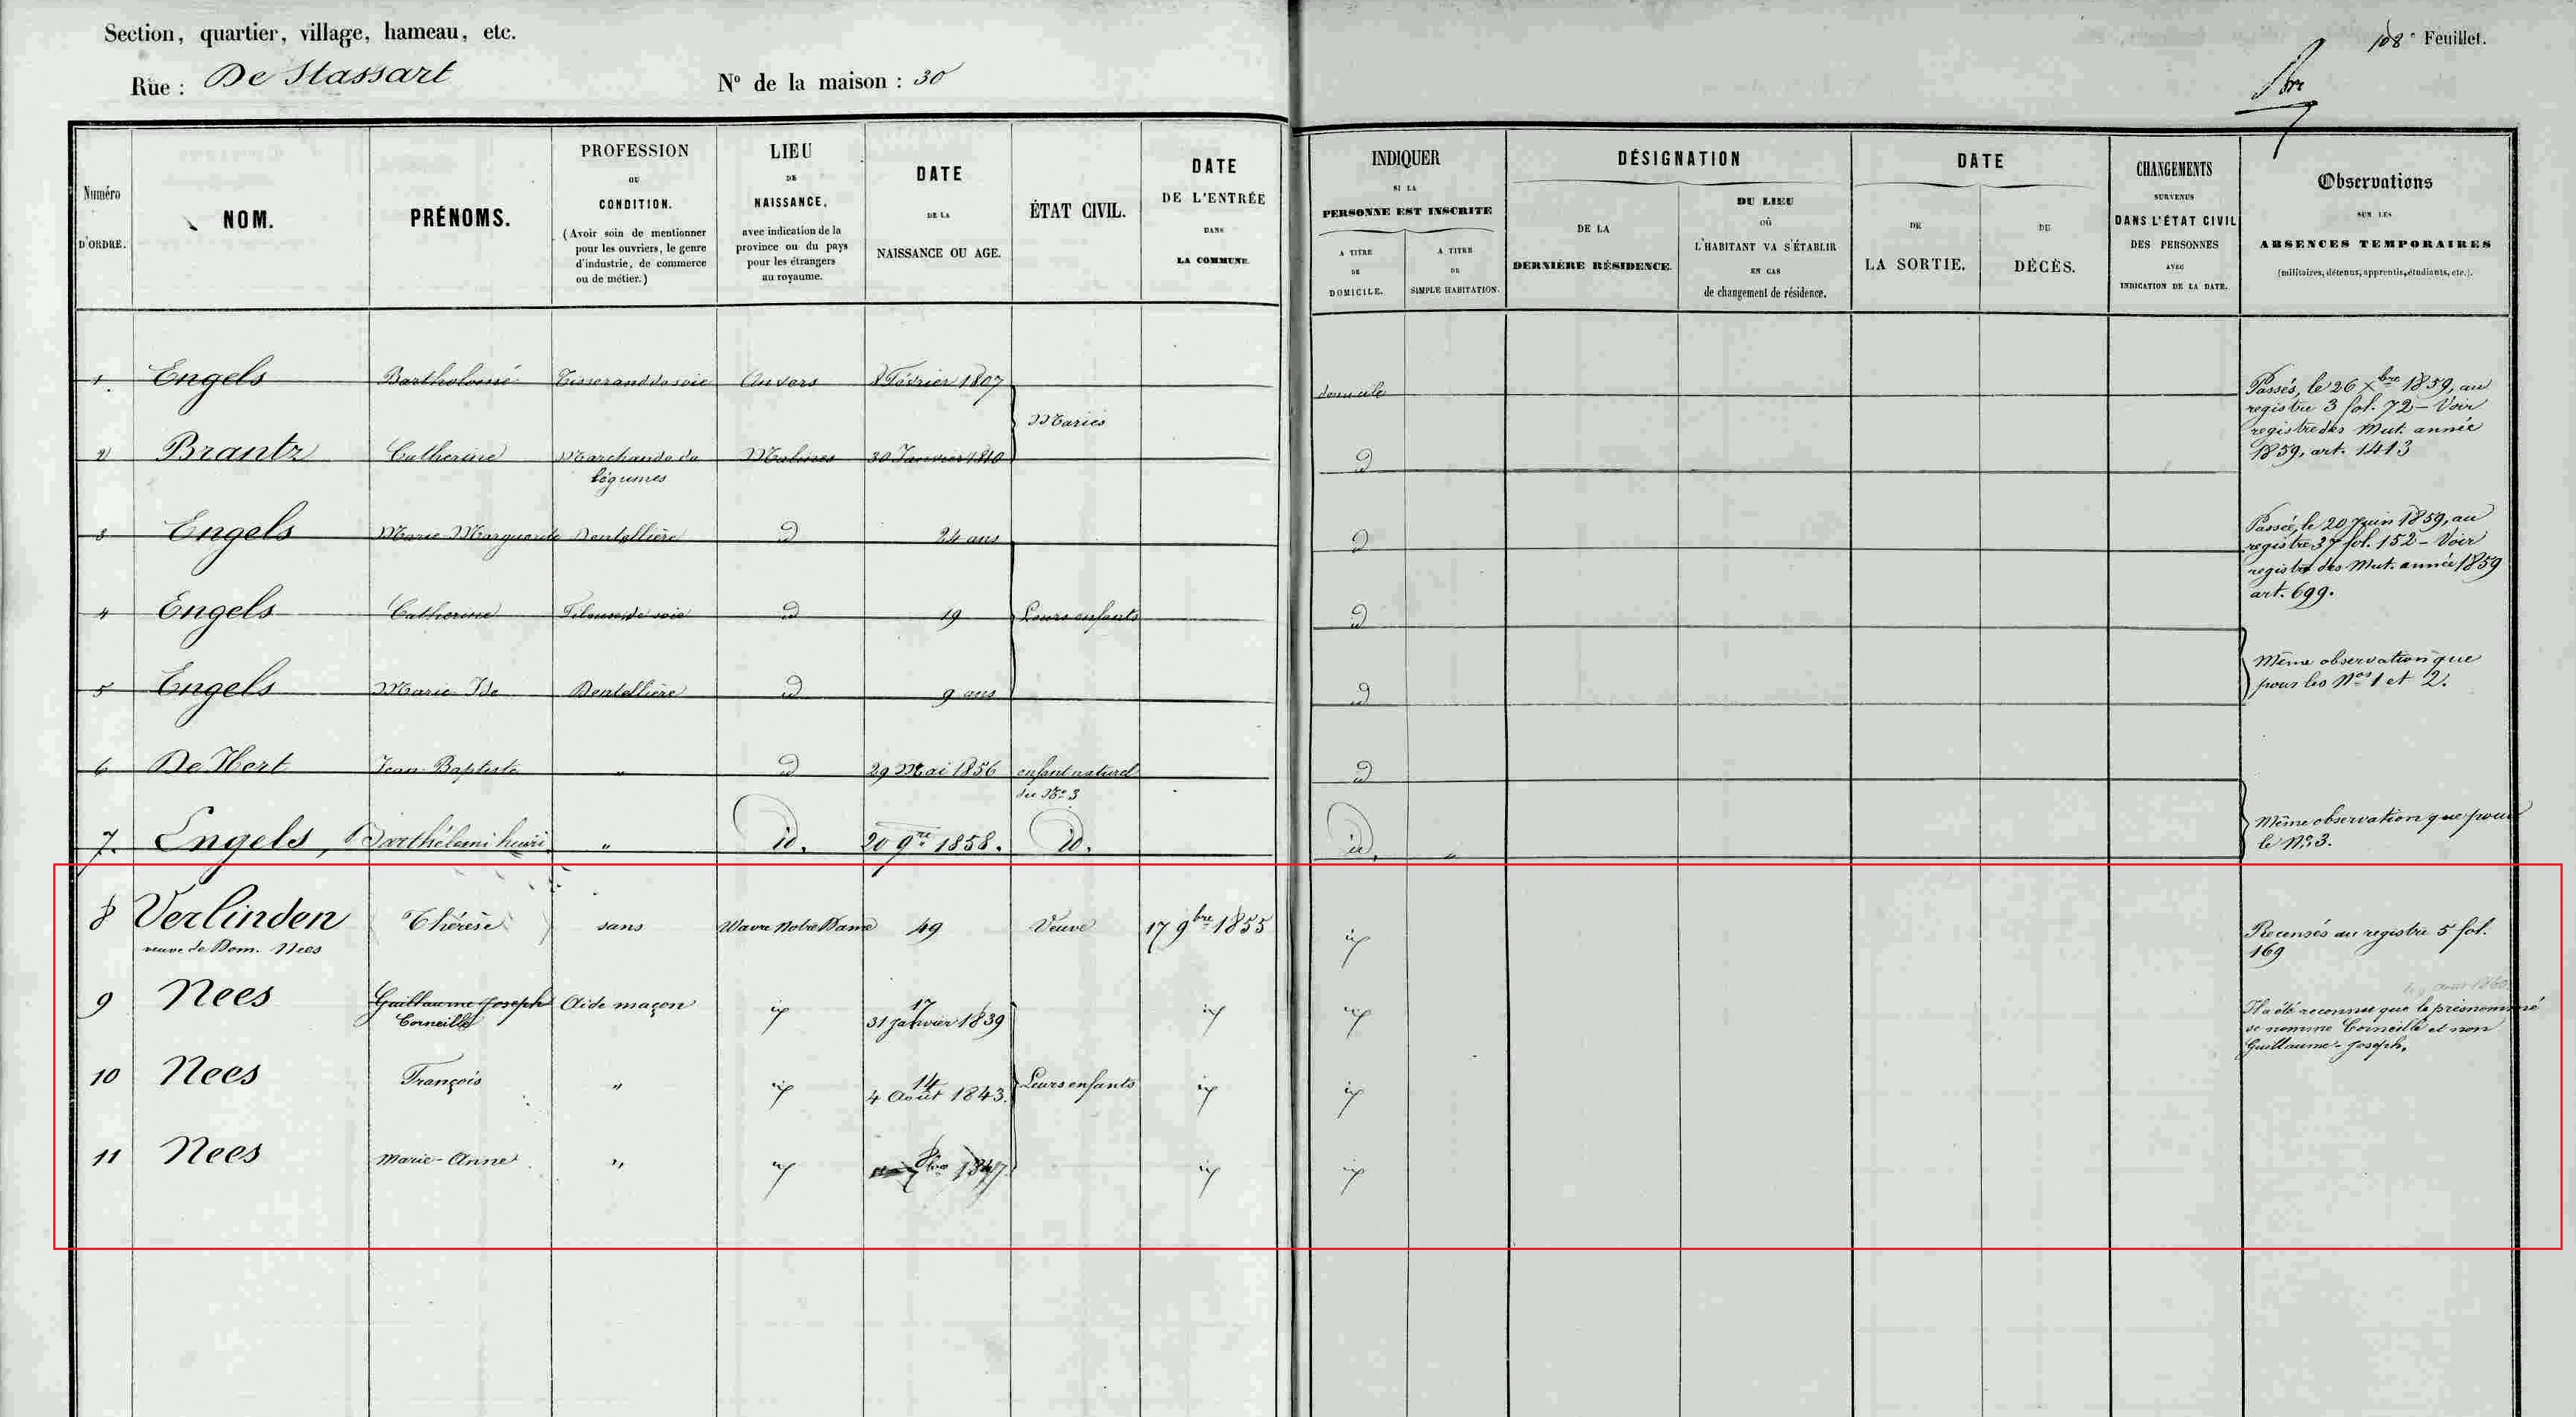 Section, quartier, village, hameau, etc.
108e Feuillet.
Rue : De Stassart N° de la maison : 30
Numéro D'ORDRE.
NOM.
PRÉNOMS.
PROFESSION
OU
CONDITION.
(Avoir soin de mentionner
pour les ouvriers, le genre
d'industrie, de commerce
ou de métier.)
LIEU
DE
NAISSANCE,
avec indication de la
province ou du pays
pour les étrangers
au royaume.
DATE
DE LA
NAISSANCE OU AGE.
ÉTAT CIVIL.
DATE
DE L'ENTRÉE
DANS
LA COMMUNE.
INDIQUER
SI LA
PERSONNE EST INSCRITE
A TITRE
DE
DOMICILE.
A TITRE
DE
SIMPLE HABITATION.
DÉSIGNATION
DE LA
DERNIÈRE RÉSIDENCE.
DU LIEU
OÙ
L'HABITANT VA S'ÉTABLIR
EN CAS
de changement de résidence.
DATE
DE
LA SORTIE.
DU
DÉCÈS.
CHANGEMENTS
SURVENUS
DANS L'ÉTAT CIVIL
DES PERSONNES
AVEC
INDICATION DE LA DATE.
Observations
SUR LES
ABSENCES TEMPORAIRES
(militaires, détenus, apprentis, étudiants, etc.).
1. Engels Bartholomé Tisserand de soie Anvers 8 Février 1807 domicile
Mariés
2 Brantz Catherine Marchande de Malines 30 Janvier 1810 d
légumes
Passés, le 26 Xbre 1859, au
registre 3 fol. 72 - Voir
registre des Mut. année
1859, art. 1413
3 Engels Marie Marguerite Dentellière d 24 ans d
Passée, le 20 Juin 1859, au
registre 37 fol. 152 - Voir
registre des Mut. année 1859
art. 699.
4 Engels Catherine Fileuse de soie d 19 Leurs enfants d
5 Engels Marie Dentellière d 9 ans d
Même observation que
pour les Nos 1 et 2.
6 De Hert Jean-Baptiste " d 29 Mai 1856 enfant naturel d
du No 3
7. Engels, Barthélemi henri " id. 20 9re 1858. id. id. "
Même observation que pour
le No 3.
8 Verlinden Thérèse sans Wavre Notre Dame 49 Veuve 17 9bre 1855 id
veuve de Dom. Nees
Recensés au registre 5 fol.
169
9 Nees Guillaume Joseph Aide maçon id 17 id id
Corneille 31 Janvier 1839
Il a été reconnu que le prénommé
se nomme Corneille et non
Guillaume-Joseph.
10 Nees François " id 14 Leurs enfants id id
4 Août 1843.
11 Nees Marie-Anne " id 1847 id id